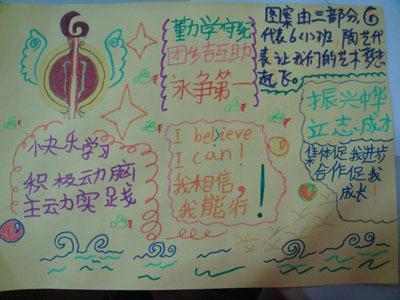 勤学守纪
团结互助
永争第一
图案由三部分,6
代表6<1>班 陶艺代
表让我们的艺术梦想
起飞。
振兴中华
立志成才
集体促我进步
合作促我
成长!
快乐学习
积极动脑
主动实践
I believe
I can!
我相信,
我能行!